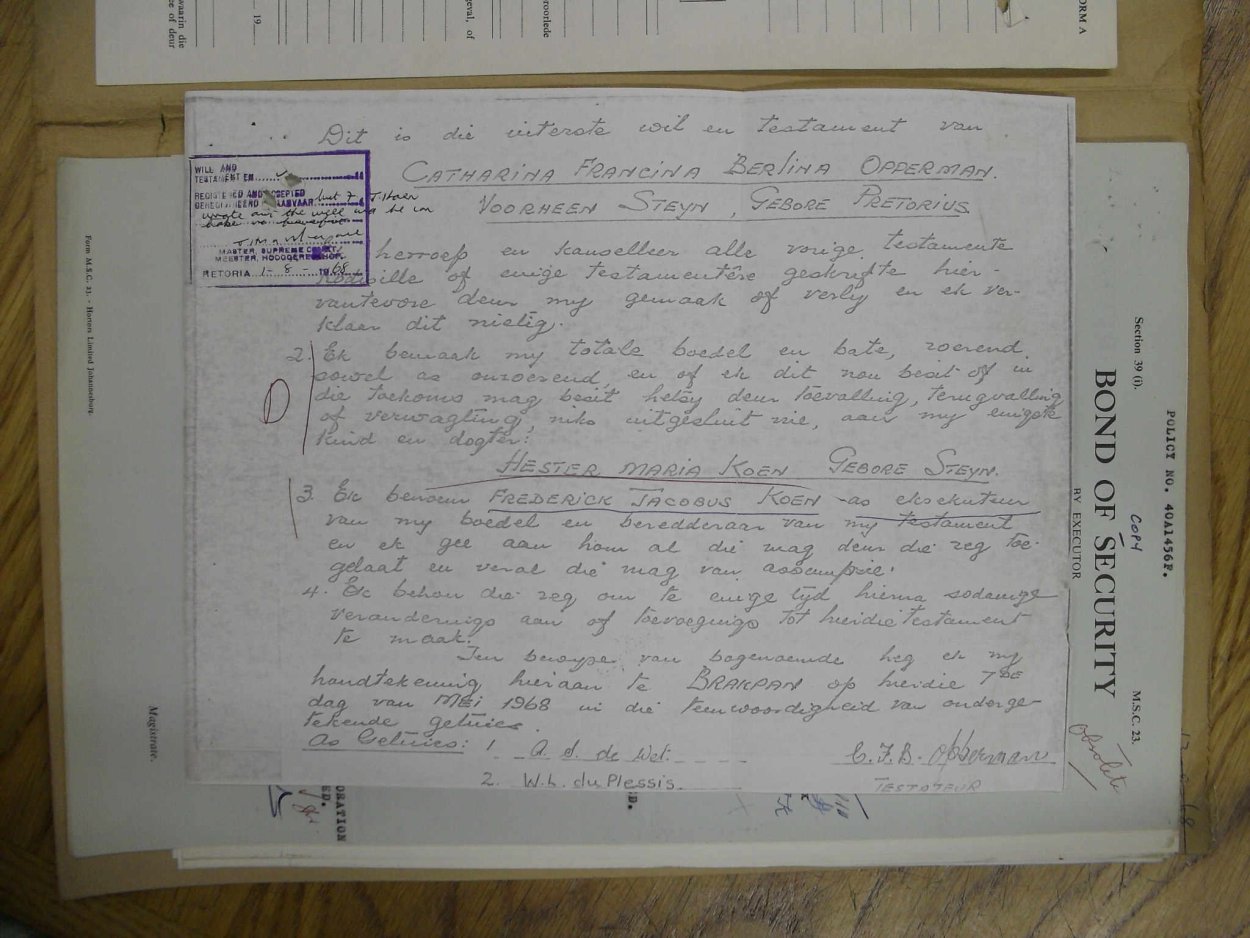 FORM A
geval, of
oorlede
19
waarin die
ce of deur
Dit is die uiterste wil en testament van
CATHARINA FRANCINA BERLINA OPPERMAN.
VOORHEEN STEYN, GEBORE PRETORIUS
WILL AND
TESTAMENT EN
REGISTERED AND ACCEPTED but F. J. Koen
GEREGISTREER EN AANVAAR
wrote out the will and he
MASTER, SUPREME COURT
MEESTER, HOOGGEREGSHOF
PRETORIA 1-8-1968
herroep en kanselleer alle vorige testamente
Kodisille of enige testamentêre geskrifte hier-
vantevore deur my gemaak of verly en ek ver-
klaar dit nietig.
2. Ek bemaak my totale boedel en bate, roerend
sowel as onroerend, en of ek dit nou besit of in
die toekoms mag besit hetsy deur toevalling, terugvalling
of verwagting, niks uitgesluit nie, aan my enigste
kind en dogter:
HESTER MARIA KOEN GEBORE STEYN.
3. Ek benoem FREDERICK JACOBUS KOEN as eksekuteur
van my boedel en beredderaar van my testament
en ek gee aan hom al die mag deur die reg toe-
gelaat en veral die mag van assumpsie.
4. Ek behou die reg om te enige tyd hierna sodanige
veranderings aan of toevoegings tot hierdie testament
te maak.
Ten bewyse van bogenoemde heg ek my
handtekening hieraan te BRAKPAN op hierdie 7DE
dag van MEI 1968 in die teenwoordigheid van onderge-
tekende getuies.
As Getuies: 1. A. S. de Wet.
C.F.B. Opperman
2. W.L. du Plessis.
TESTATEUR
POLICY NO. 40A1456F.
Section 39 (i).
COPY
M.S.C. 23.
BOND OF SECURITY
BY EXECUTOR
obsolete
Form M.S.C. 23. - Hortors Limited Johannesburg
Magistrate.
ORATION
ED.
D.